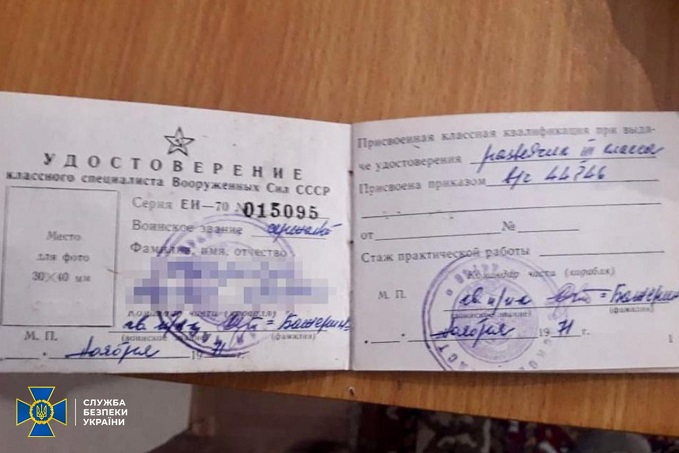 УДОСТОВЕРЕНИЕ
классного специалиста Вооруженных Сил СССР
Серия ЕИ—70 № 015095
Место
для фото
30×40 мм
Воинское звание
Фамилия, имя, отчество
Командир части (корабля)
гв. п/п-к
(воинское звание) (фамилия)
М. П.
ноября 1971 г.
Присвоенная классная квалификация при выда-
че удостоверения разведчик III класса
Присвоена приказом в/ч 44746
от № 
Стаж практической работы
Командир части (корабля)
М. П. гв. п/п-к
(воинское звание) (фамилия)
ноября 1971 г.
1
СЛУЖБА
БЕЗПЕКИ
УКРАЇНИ